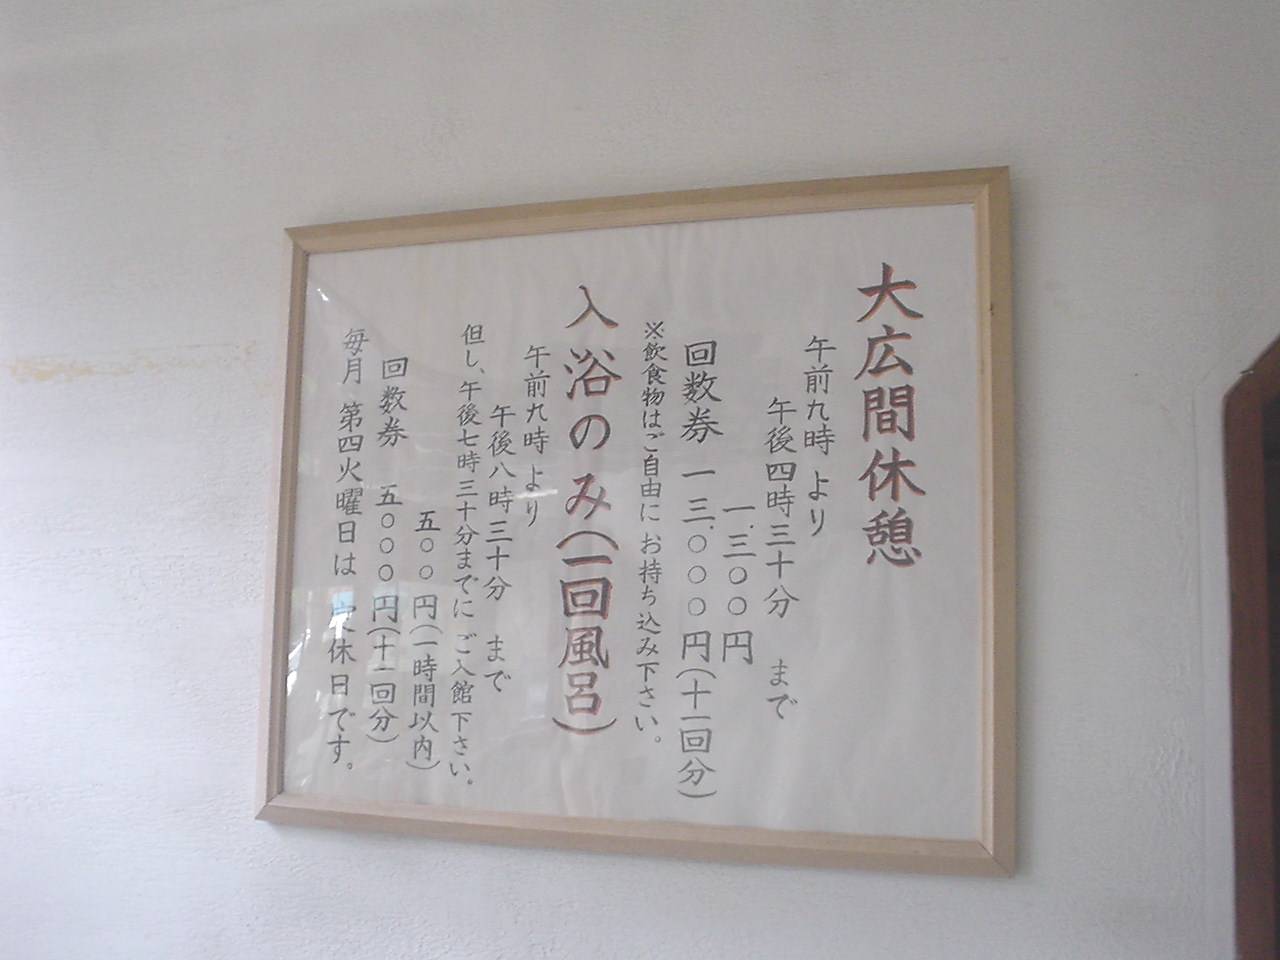 大広間休憩
午前九時より
午後四時三十分 まで
一、三〇〇円
回数券 一三、〇〇〇円(十一回分)
※飲食物はご自由に お持ち込み下さい。
入浴のみ(一回風呂)
午前九時より
午後八時三十分 まで
但し、午後七時三十分までに ご入館下さい。
五〇〇円(一時間以内)
回数券 五〇〇〇円(十一回分)
毎月 第四火曜日は 定休日です。